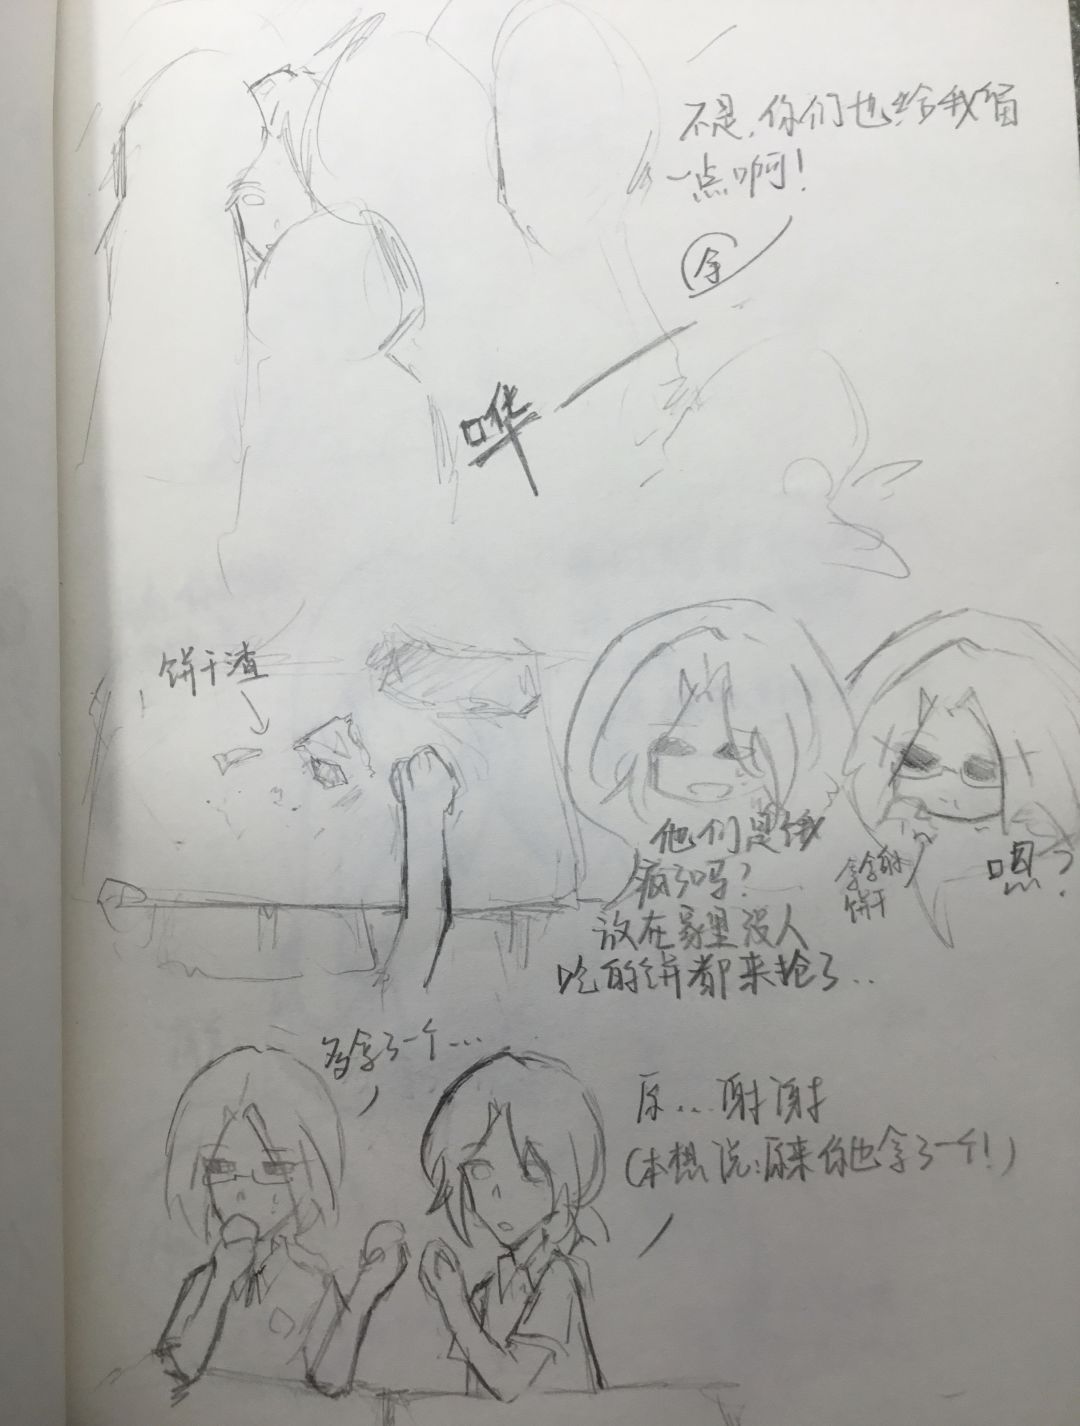 不是，你们也给我留
一点啊！
余
哗
饼干渣
他们是饿
疯了吗？
放在家里没人
吃的饼都来抢了..
拿拿射
饼干
嗯？
多拿了一个...
原...谢谢
（本想说:原来你也拿了一个！）